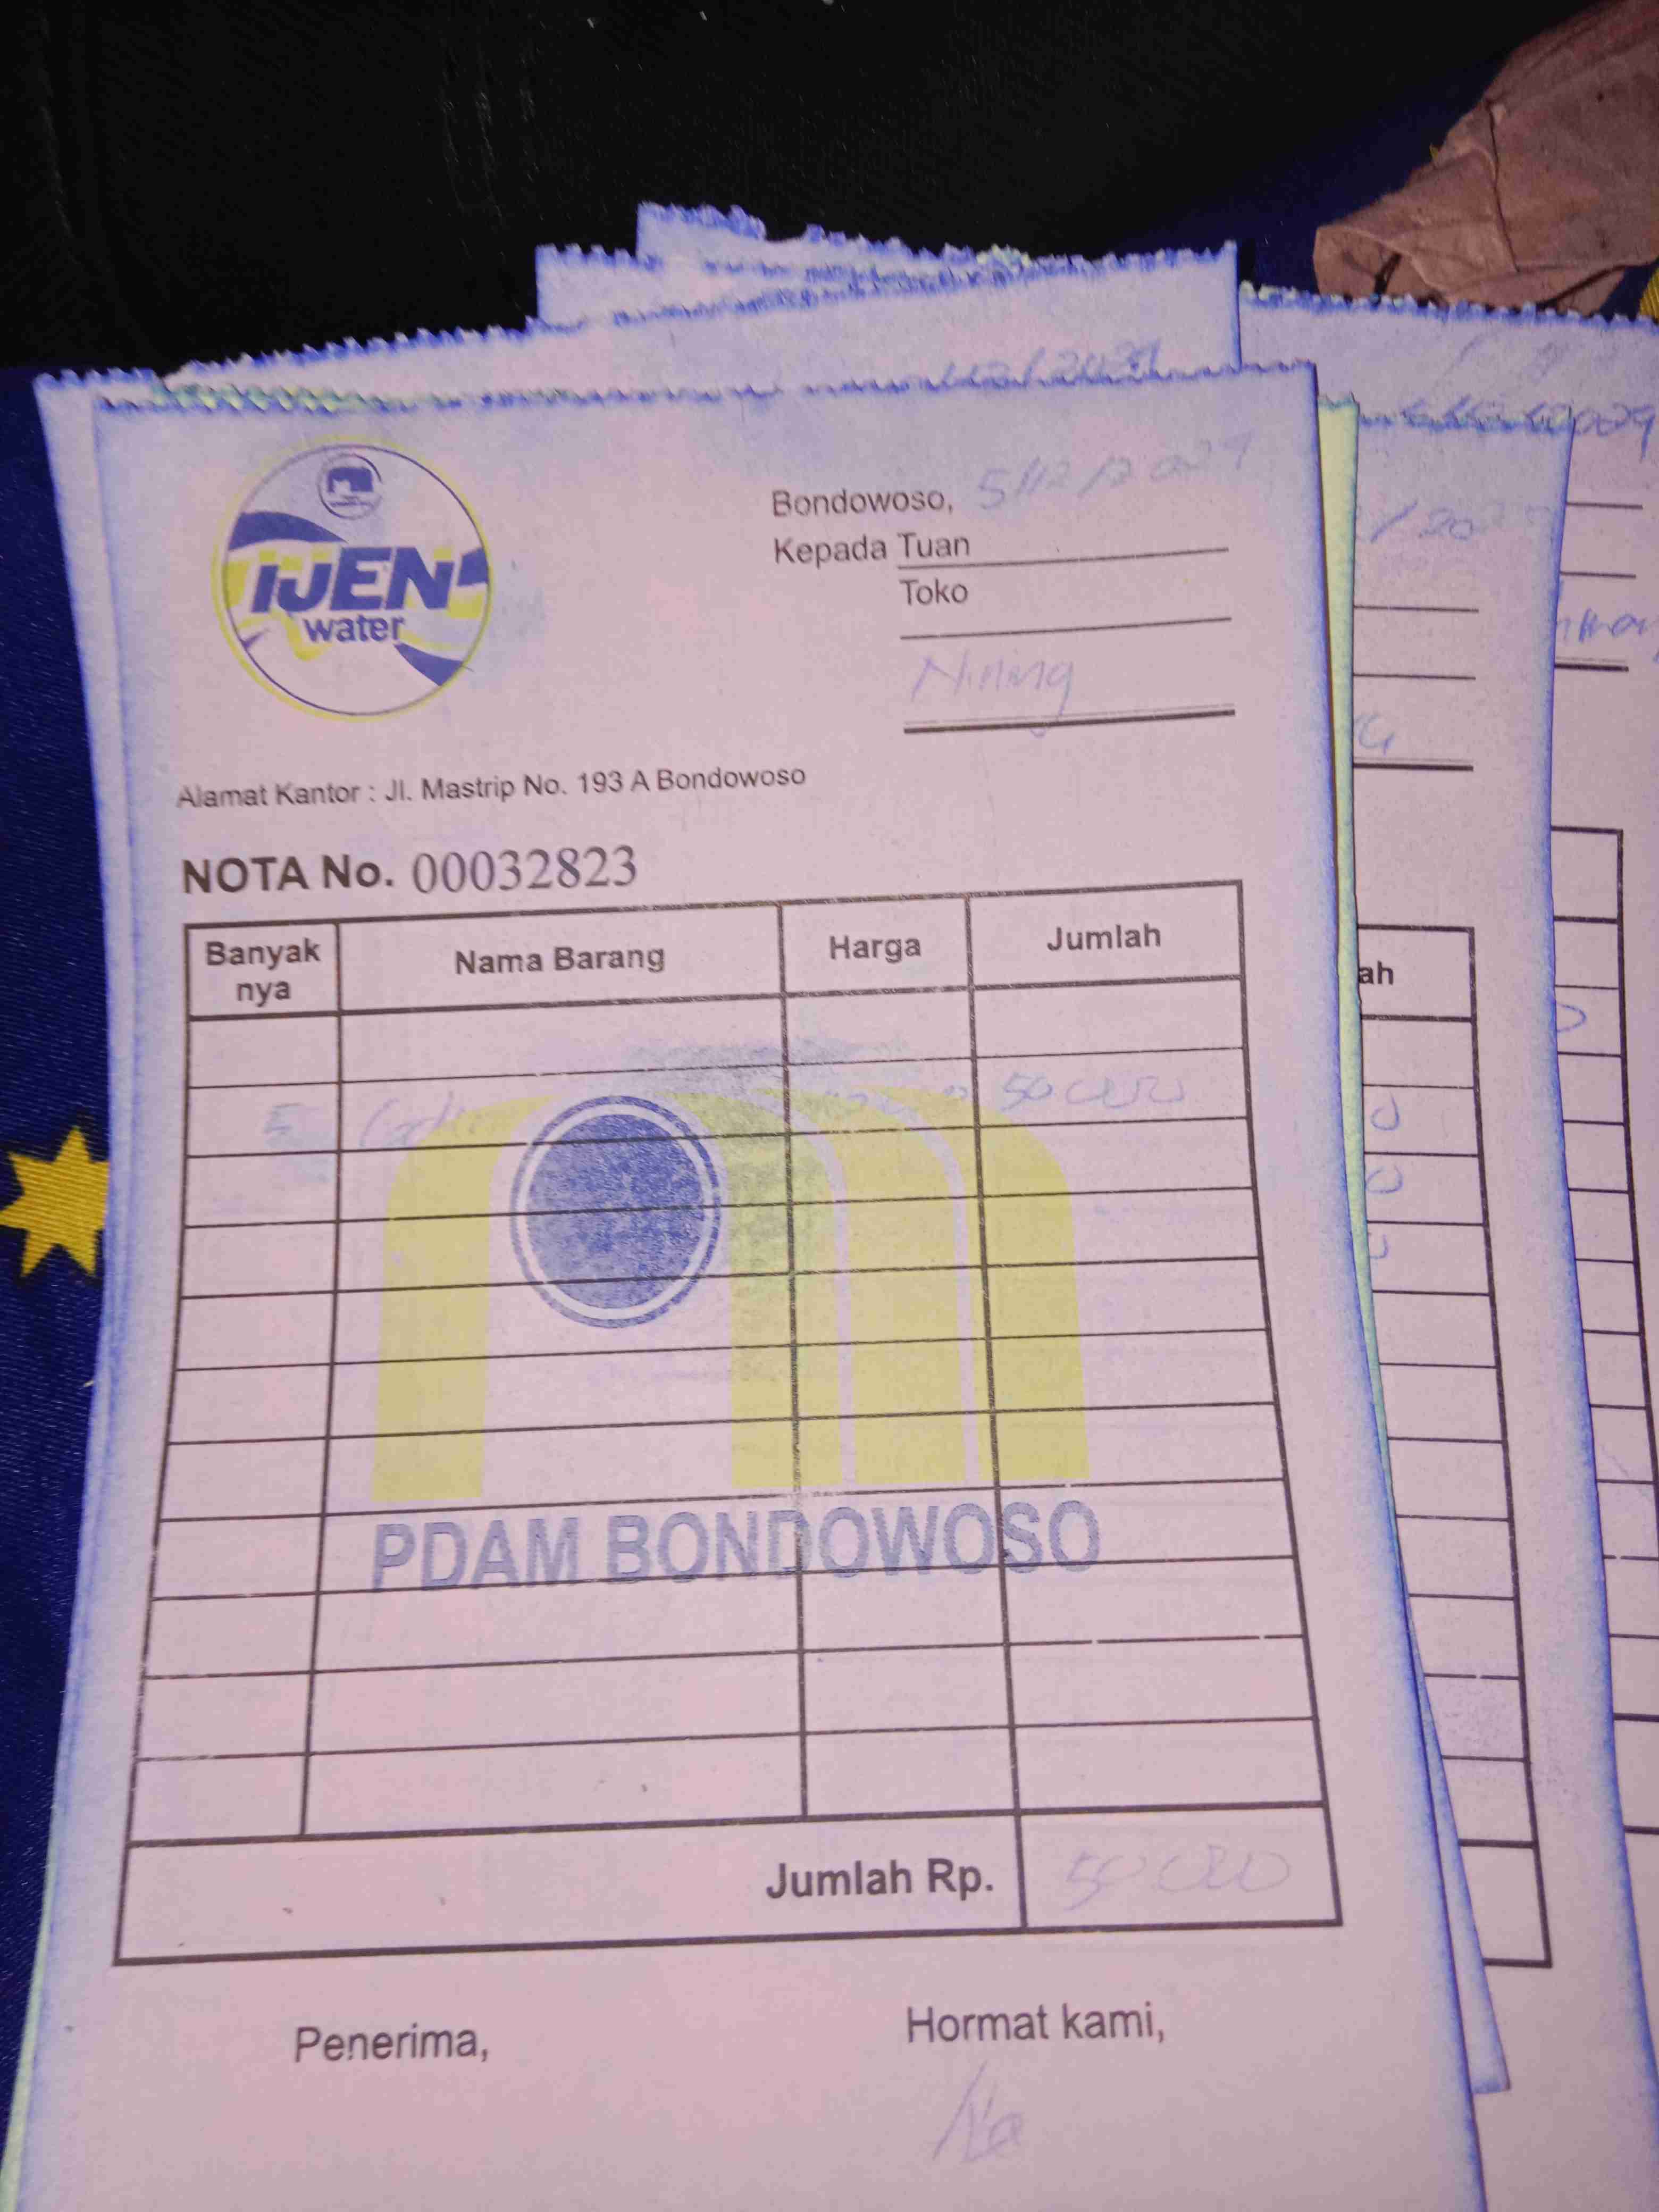 IJEN
water
Bondowoso, 5/12/2024
Kepada Tuan
Toko
Nining
Alamat Kantor : Jl. Mastrip No. 193 A Bondowoso
NOTA No. 00032823
Banyak nya Nama Barang Harga Jumlah
5 50000
PDAM BONDOWOSO
Jumlah Rp. 50000
Penerima, Hormat kami,
ah